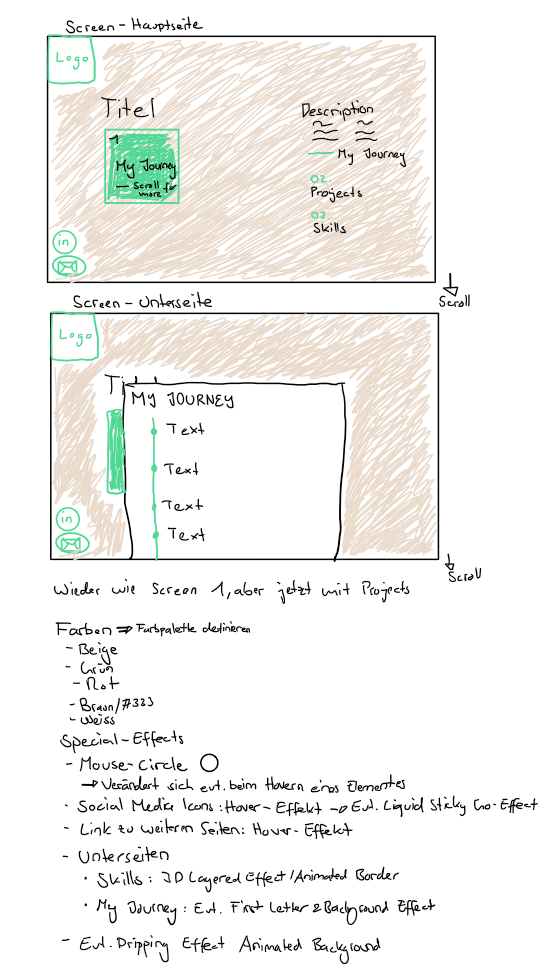 Screen - Hauptseite
Logo
Titel
1
My Journey
— Scroll for more
Description
— My Journey
02.
Projects
02.
Skills
in
Scroll
Screen - Unterseite
Logo
Ti
MY JOURNEY
Text
Text
Text
Text
in
Scroll
Wieder wie Screen 1, aber jetzt mit Projects
Farben ⇒ Farbpalette definieren
- Beige
- Grün
- Rot
- Braun/#333
- Weiss
Special-Effects
- Mouse-Circle ○
→ Verändert sich evt. beim Hovern eines Elementes
· Social Media Icons: Hover-Effekt → Evt. Liquid Sticky Goo-Effect
- Link zu weiteren Seiten: Hover-Effekt
- Unterseiten
· Skills: 3D Layered Effect/Animated Border
· My Journey: Evt. First Letter & Background Effect
- Evt. Dripping Effect Animated Background